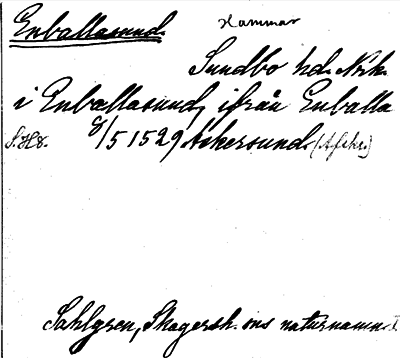 Enballasund.
Hammar
Sundbo hd. Nrk.
i Enballasund, ifrån Enballa
S. H8. 8/5 1529 Askersund. (Afskr.)
Sahlgren, Skagersh. ons naturnamn.